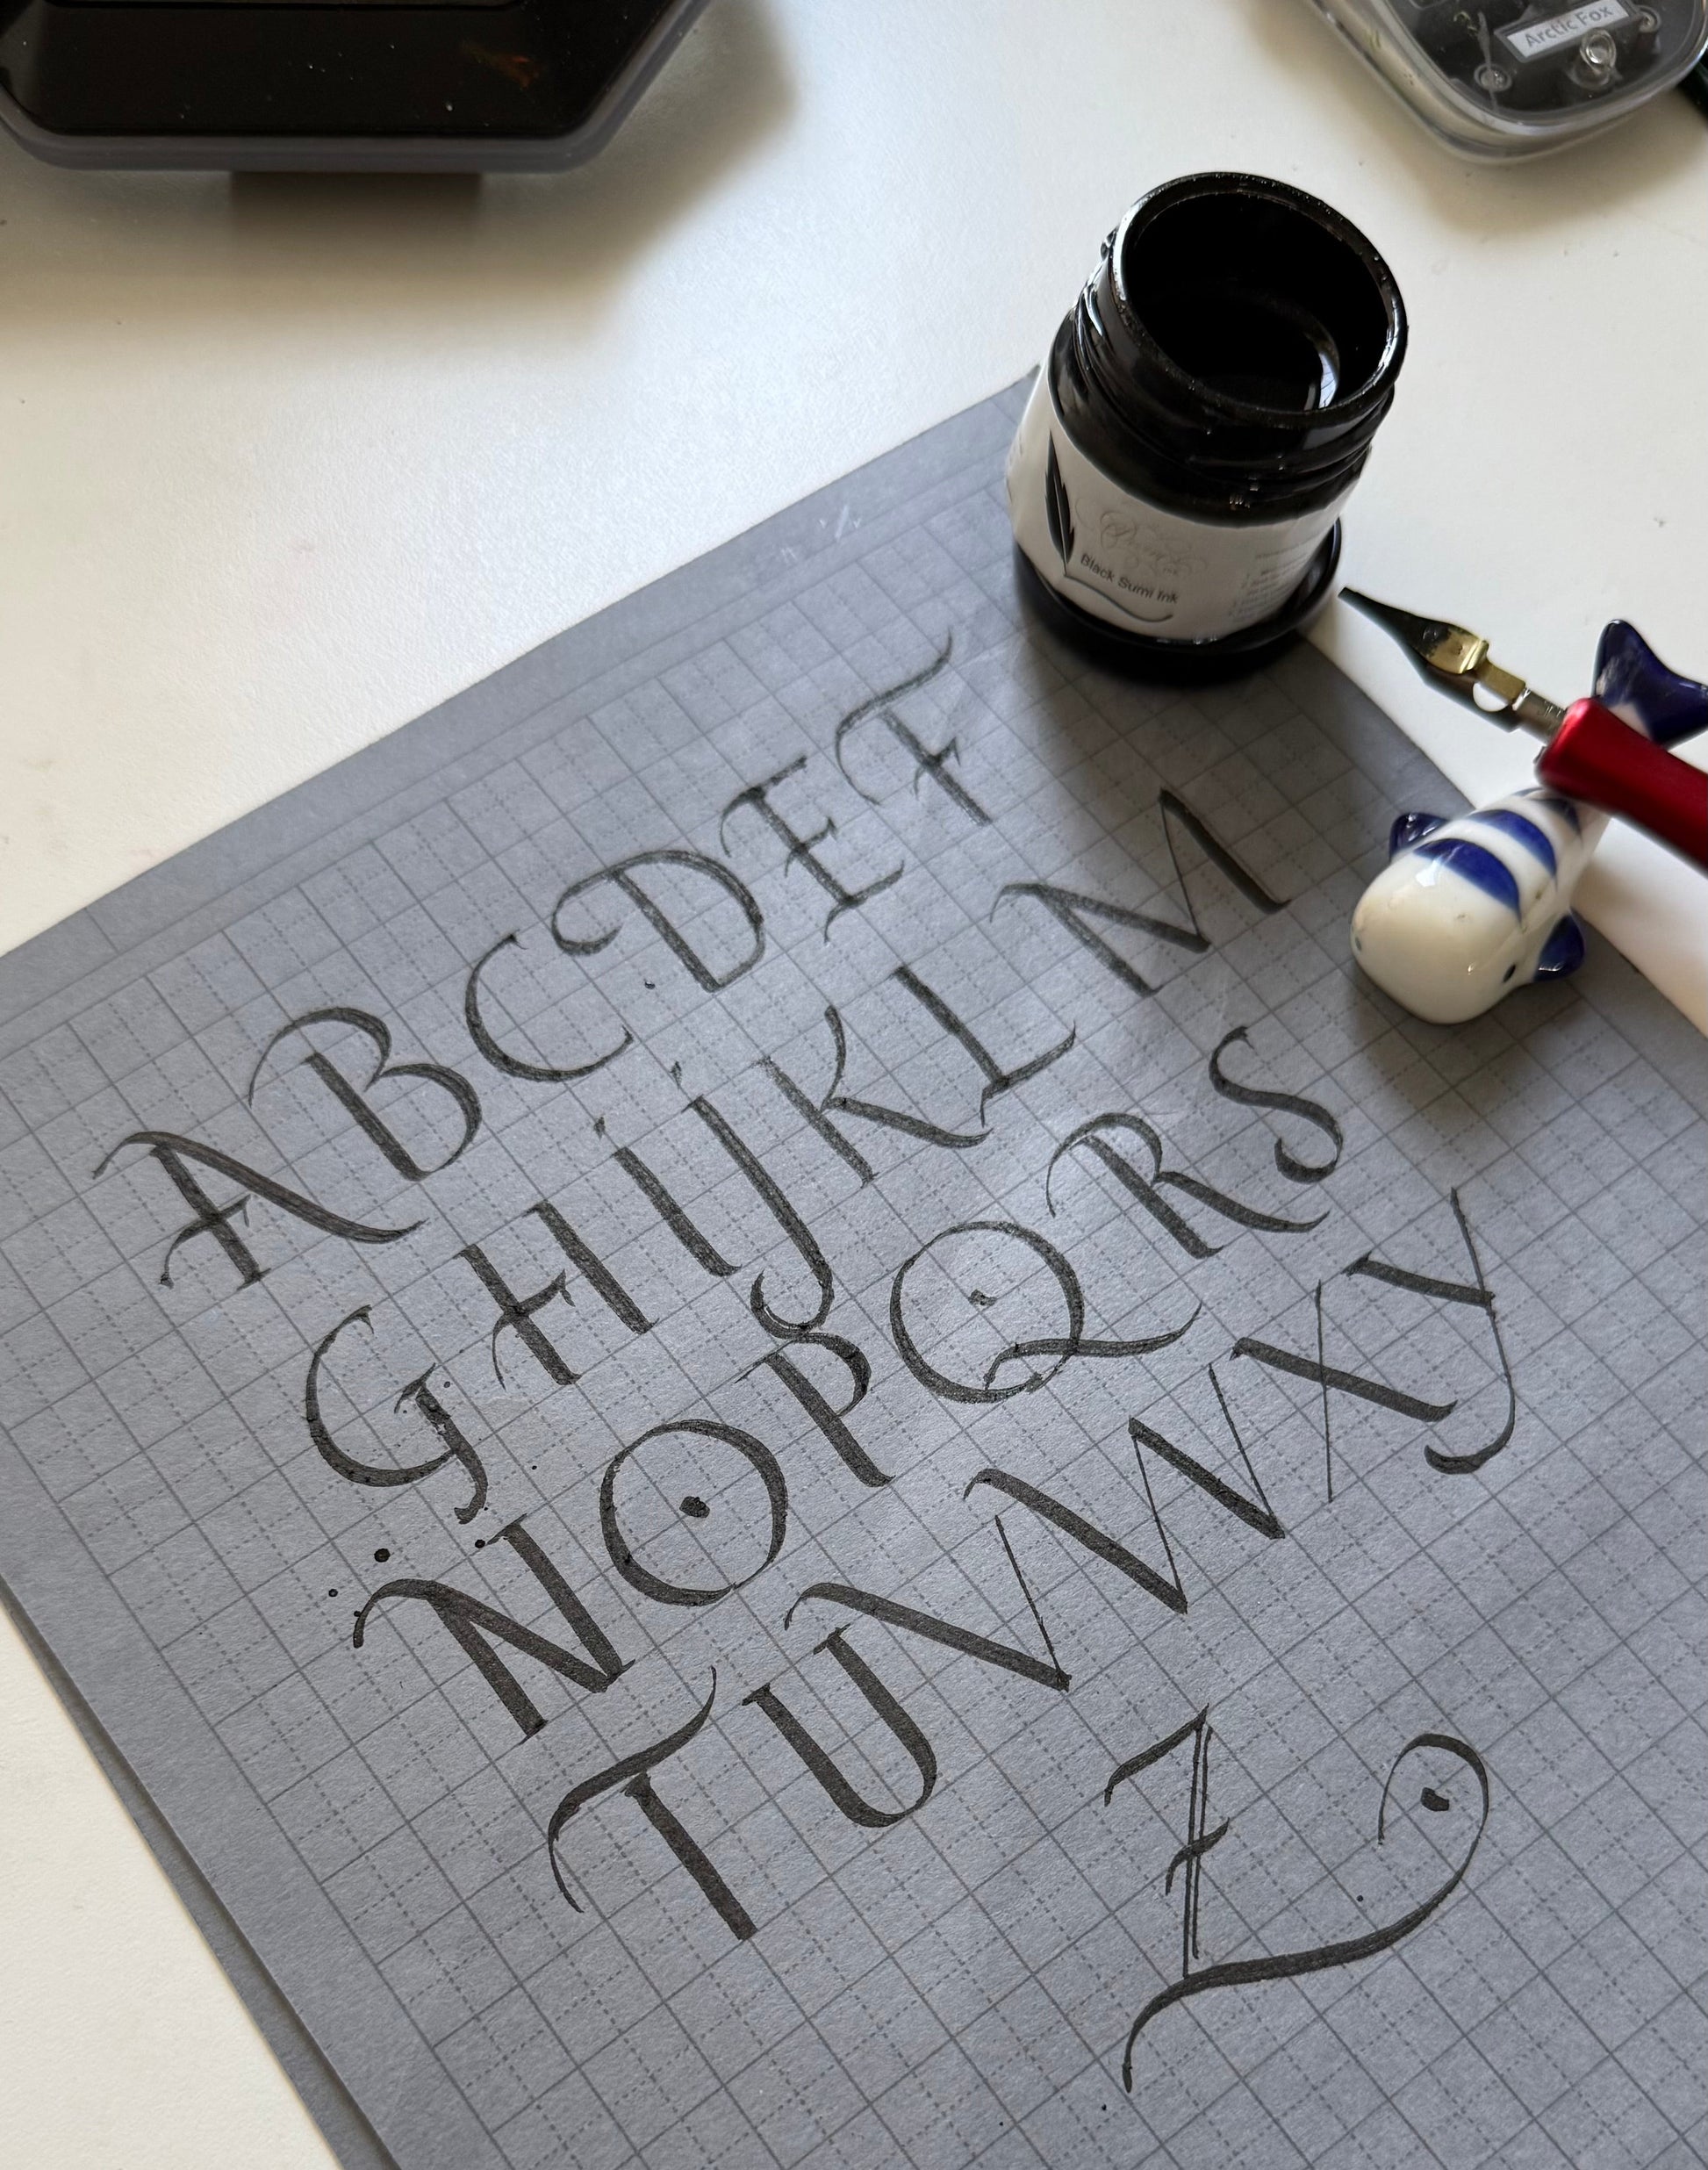 Arctic Fox
Black Sumi Ink
ABCDEF
GHIJKLM
NOPQRS
TUVWXY
Z